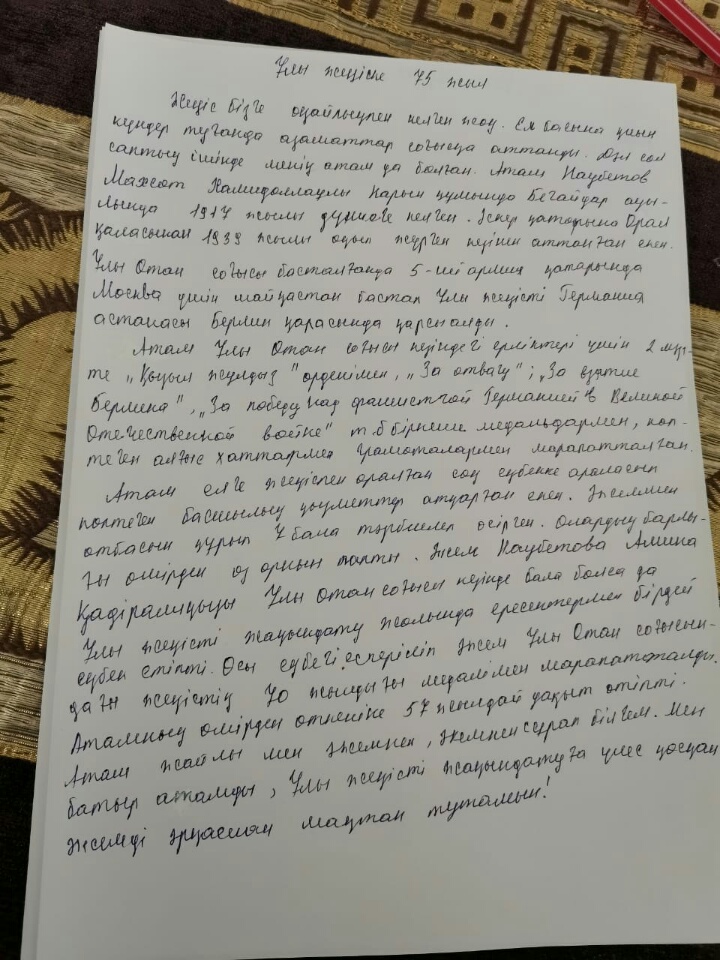 Ұлы жеңіске 75 жыл
Жеңіс бізге оңайлықпен келген жоқ. Ел басына қиын
күндер туғанда азаматтар соғысқа аттанды. Дәл сол
саптың ішінде менің атам да болған. Атам Наубетов
Махсот Хамидоллаұлы Нарын құмында Бегайдар ауы-
лында 1917 жылы дүниеге келген. Әскер қатарына Орал
қаласынан 1939 жылы оқып жүрген кезінен аттанған екен.
Ұлы Отан соғысы басталғанда 5-ші армия қатарында
Москва үшін шайқастан бастап Ұлы жеңісті Германия
астанасы Берлин қаласында қарсы алды.
Атам Ұлы Отан соғысы кезіндегі ерліктері үшін 2 мүр-
те „Қызыл жұлдыз" орденімен, „За отвагу"; „За взятие
Берлина", „За победу над фашисткой Германией в Великой
Отечественной войне" т.б бірнеше медальдармен, көп-
теген алғыс хаттармен грамоталармен марапатталған.
Атам елге жеңіспен оралған соң еңбекке араласып
көптеген басшылық қызметтер атқарған екен. Әжеммен
отбасын құрып 7 бала тәрбиелеп өсірген. Олардың барлы-
ғы өмірден өз орнын тапты. Әжем Наубетова Амина
Қадірәліқызы Ұлы Отан соғысы кезінде бала болса да
Ұлы жеңісті жақындату жолында ересектермен бірдей
еңбек етіпті. Осы еңбегі ескеріліп әжем Ұлы Отан соғысын-
дағы жеңістің 70 жылдығы медалімен марапатталды.
Атамның өмірден өткеніне 57 жылдай уақыт өтіпті.
Атам жайлы мен әжемнен, әкемнен сұрап білгем. Мен
батыр атамды, Ұлы жеңісті жақындатуға үлес қосқан
әжемді әрқашан мақтан тұтамын!